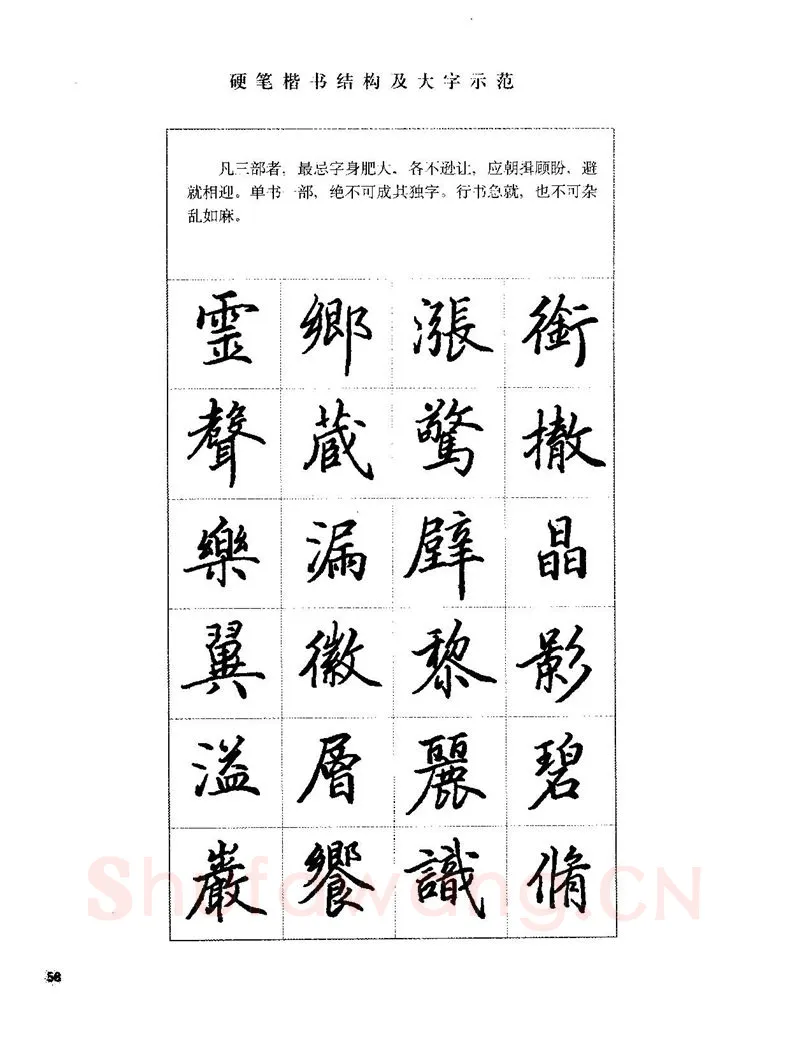 硬笔楷书结构及大字示范
凡三部者，最忌字身肥大、各不逊让，应朝揖顾盼、避
就相迎。单书一部，绝不可成其独字。行书急就，也不可杂
乱如麻。
霊 鄉 漲 銜
聲 蔵 驚 撤
樂 漏 壁 晶
翼 徽 黎 影
溢 層 麗 碧
巖 饗 識 脩
ShufaWang.CN
56